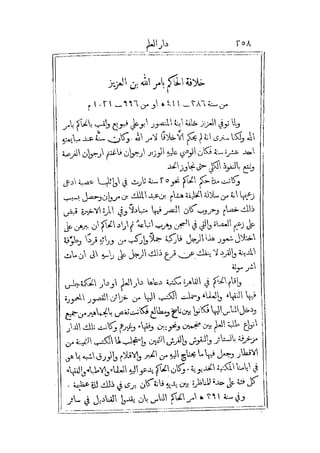 ٢٥٨ دار العلم
خلافة الحاكم بامر الله بن العزيز
من سنة ٣٨٦ – ٤١١ ه او من ٩٩٦ – ١٠٢١ م
ولما توفي العزيز خلفه ابنه المنصور ابو علي فبويع ولقب بالحاكم بامر
الله ولكنا سنرى انه لم يحكم الا خلافًا لامر الله وكان سنه عند مبايعته
احد عشرة سنة فكان الوصي عليه الوزير ارجوان فاغتنم ارجوان الفرصة
وتمتع بالنفوذ الكلي حتى تجاوز الحد
وكانت مدة حكم الحاكم نحو ٢٥ سنة ثارت في اوائلها عصبة ادعى
زعيمها انه من سلالة الخليفة هشام بن عبد الملك بن مروان وحصل بسبب
ذلك خصام وحروب كان النصر فيها متبادلاً وفي المرة الاخيرة قبض
على زعيم العصاة والقي في السجن وهرب اتباعه ثم اراد الحاكم ان يبرهن على
اختلال شعور هذا الرجل فاركبه جملاً واركب من ورائه قردًا وطوفه
المدينة والقرد لا ينفك عن قرع ذلك الرجل على راسه الى ان مات
اشر موتة
واقام الحاكم في القاهرة مكتبة دعاها دار العلم او دار الحكمة جلس
فيها الفقهاء والعلماء وحملت الكتب اليها من خزائن القصور المعمورة
ودخل الناس اليها فكانوا بين ناسخ ومطالع فكانت تغص بالجماهير من جميع
انواع طلبة العلم بين منجمين ونحويين وفقهاء وغيرهم وكانت تلك الدار
مزخرفة بالستائر والنقوش والفرش الثمين واستجلب لها الكتب الثمينة من
الاقطار وجعل فيها ما يحتاج اليه من الحبر والاقلام والورق اشبه بما هو
في ايامنا المكتبة الخديوية وكان الحاكم يدعو اليه العلماء والاطباء والفقهاء
كل فئة على حدة للمناظرة بين يديه فانه كان يرى في ذلك لذة عظيمة
وفي سنة ٣٩١ ه امر الحاكم الناس بان يقدوا القناديل في سائر